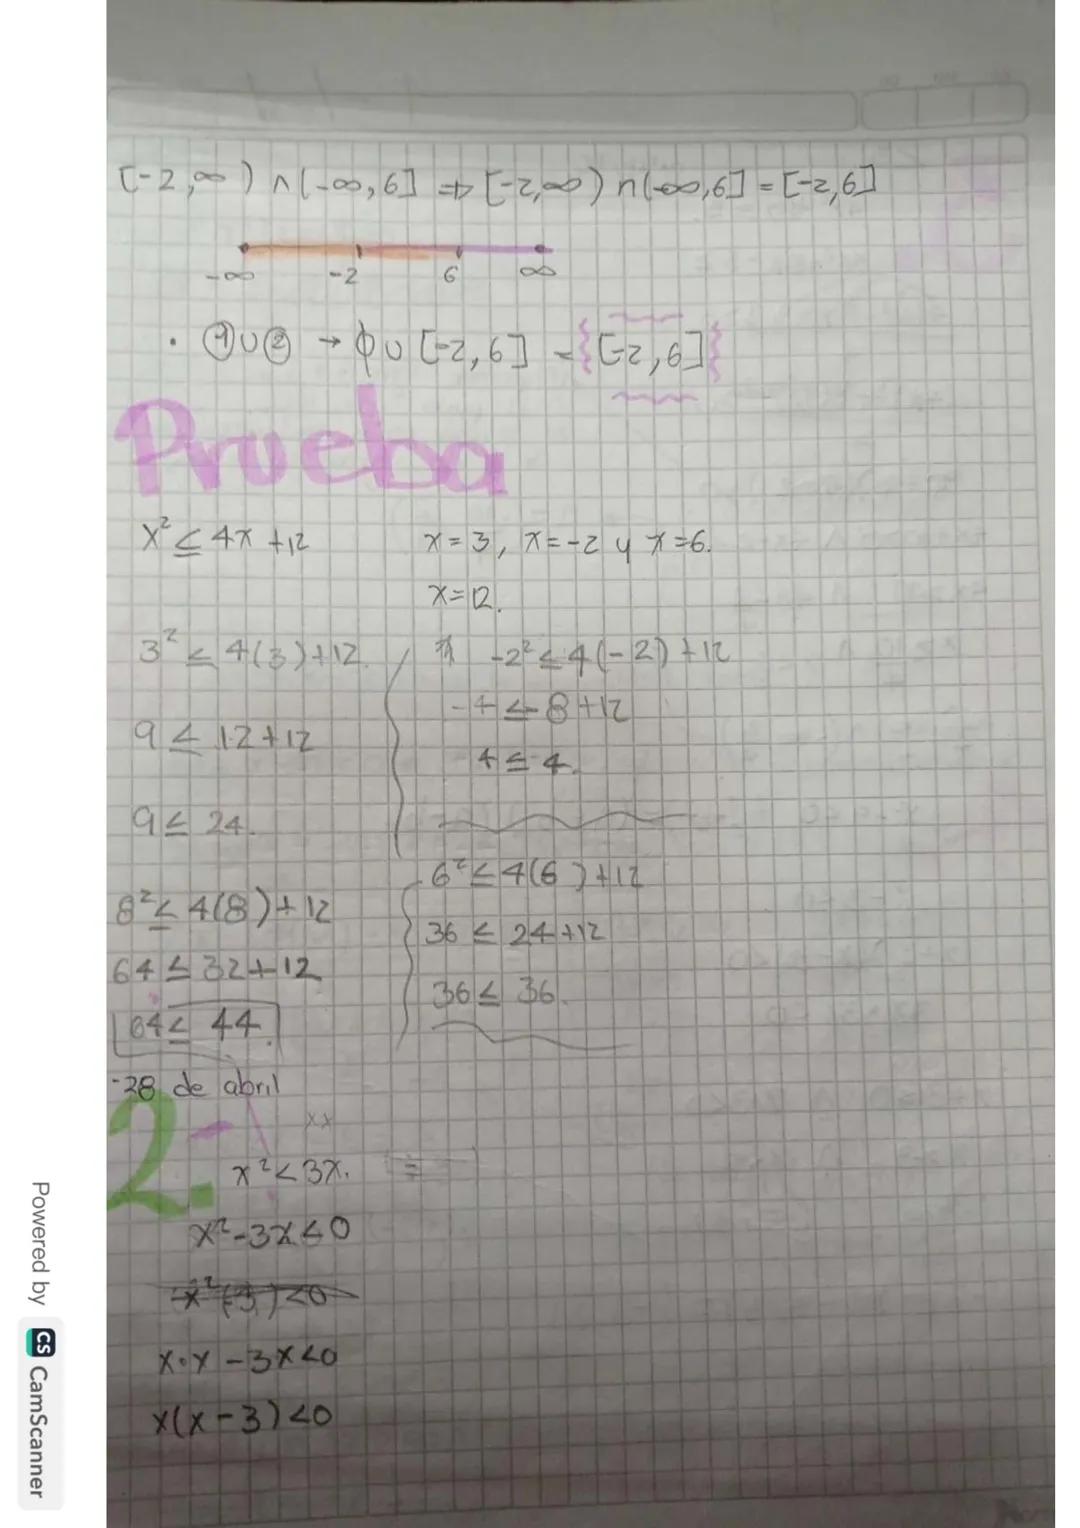 [-2,∞) ∩ (-∞,6] ⇒ [-2,∞) ∩ (-∞,6] = [-2,6]
-∞ -2 6 ∞
· ① ∪ ② → ϕ ∪ [-2,6] = {[-2,6]}
Prueba
x² ≤ 4x +12
x = 3, x = -2 y x = 6.
x = 12.
3² ≤ 4(3)+12.
9 ≤ 12+12
9 ≤ 24.
-2² ≤ 4(-2)+12
-4 ≤ -8+12
4 ≤ 4.
8² ≤ 4(8)+12
64 ≤ 32+12
64 ≤ 44.
6² ≤ 4(6)+12
36 ≤ 24+12
36 ≤ 36.
-28 de abril
xx
2.
x² < 3x.
x²-3x<0
x·x -3x<0
x(x-3)<0
Powered by CS CamScanner